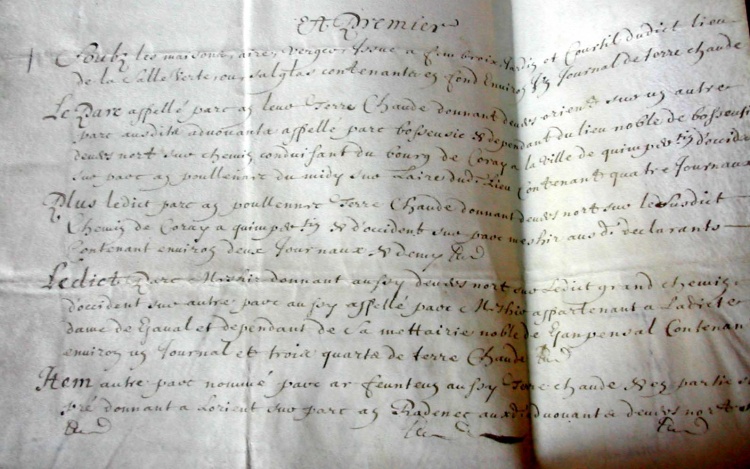 Et Premier
Soubz les maisons, aires, verger, Issue a feu, trois Jardin et Courtil dudict lieu
de la Salle verte ou Salglas contenants en fond environ un Journal de terre chaude
Le Parc appellé parc an leur Terre Chaude donnant devers orient sur un autre
parc ausdits advouants appellé parc bossensic & dependant du lieu noble de bossensic
devers nort sur chemin conduisant du bourg de Coray a la ville de quimper & d'occident
sur parc an poullenarc du midy sur Laire dudit Lieu Contenant quatre Journaux
Plus ledict parc an poullennarc Terre Chaude donnant devers nort sur le susdict
Chemin de Coray a quimper & d'occident sur parc meshir ausdits declarants
Contenant environ deux Journaux & demy
Ledict Parc Meshir donnant aussy devers nort sur Ledict grand chemin
d'occident sur autre parc aussy appellé parc Meshir appartenant a Ladicte
dame de et dependant de sa mettairie noble de Contenant
environ un Journal et trois quarts de terre Chaude
Item autre parc nommé parc ar feunteun aussy Terre chaude & en partie
Pré donnant a Lorient sur parc an Radenec auxdits advouants & devers nort